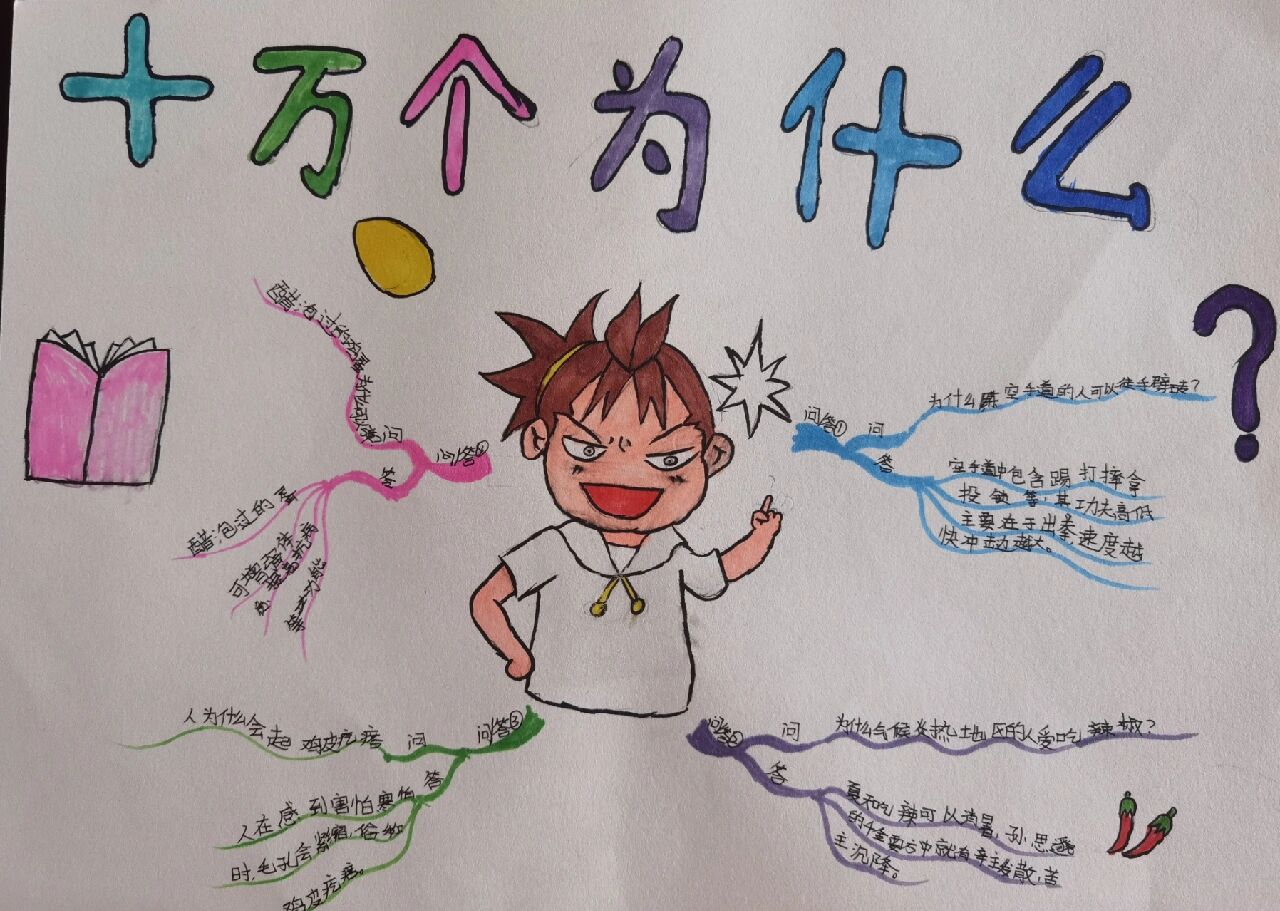 十万个为什么
问答①
问
为什么练空手道的人可以徒手劈砖?
答
空手道中包含踢打摔拿
投 等,其功夫高低
主要在于出拳,速度越
快冲 越大。
问答
问
为什么气候炎热地区的人爱吃辣椒?
答
夏天吃辣可以消暑,孙思邈
的千金要方中就有辛主发散,苦
主沉降。
问答③
问
人为什么会起鸡皮疙瘩
答
人在感到害怕寒
时,毛孔会紧 ,俗
鸡皮疙瘩。
问答
问
醋泡过的 蛋为什么可以
答
醋泡过的蛋
可增强体
抗病
等功能